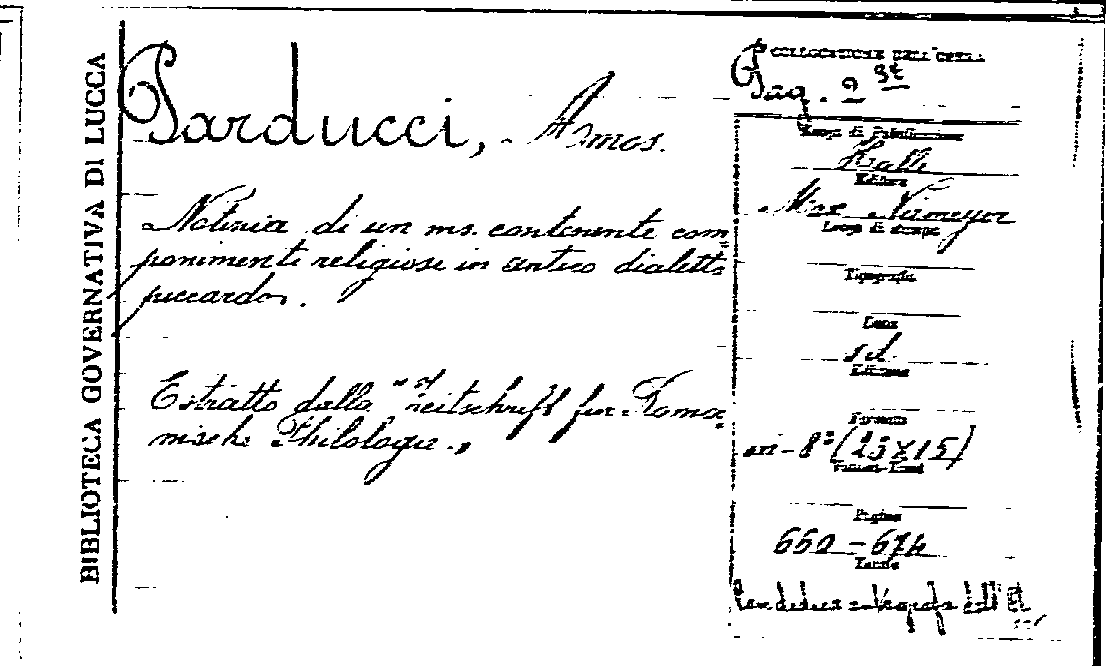 BIBLIOTECA GOVERNATIVA DI LUCCA
Parducci, Amos.
Notizia di un ms. contenente com
ponimenti religiosi in antico dialetto
piccardo.
Estratto dalla "Zeitschrift für Roma
nische Philologie.,,
COLLOCAZIONE DELL'OPERA
Luogo di Pubblicazione
Halle
Editore
Max Niemeyer
Luogo di stampa
Tipografia
Anno
s.d.
Edizione
Formato
in-8° (23x15)
Volumi-Tomi
Pagine
660-674
Tavole
Con dedica autografa dell'A.